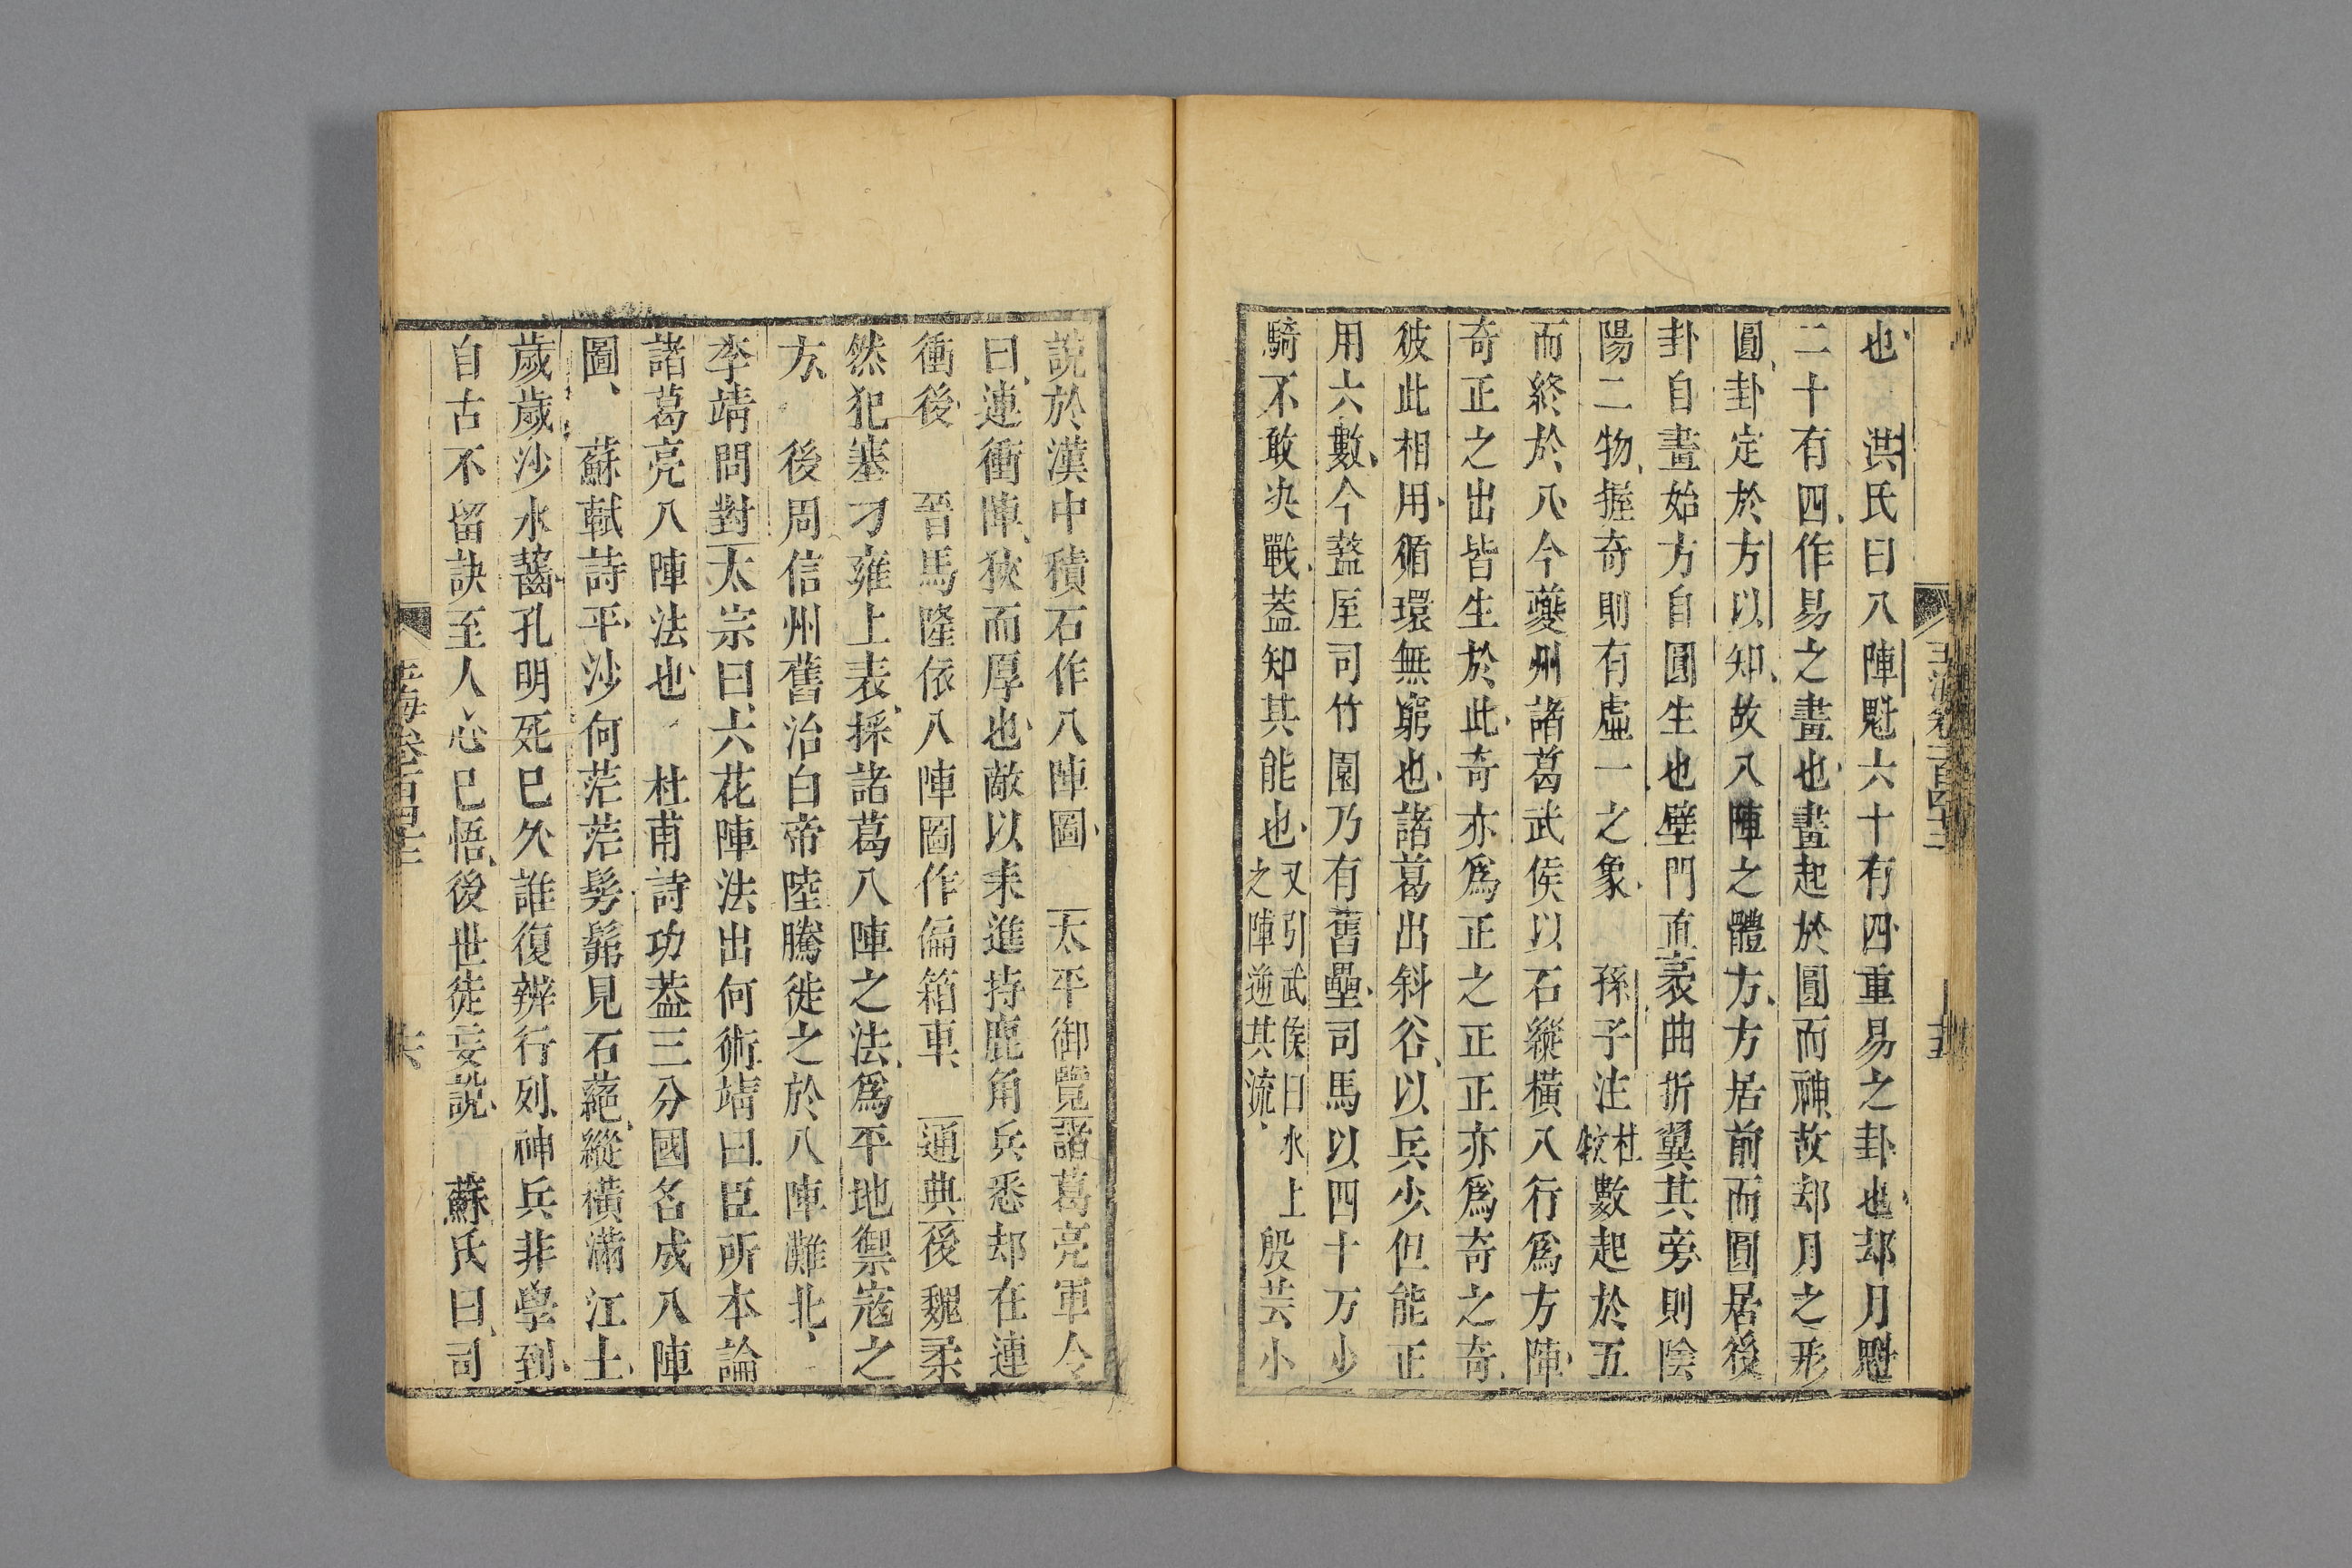 也洪氏曰八陣魁六十有四重易之卦也却月魁
二十有四作易之畫也畫起於圓而神故却月之形
圓卦定於方以知故八陣之體方方居前而圓居後
卦自畫始方自圓生也壁門直裘曲折翼其旁則陰
陽二物握奇則有虛一之象孫子注杜牧數起於五
而終於八今夔州諸葛武侯以石縱橫八行爲方陣
奇正之出皆生於此奇亦爲正之正正亦爲奇之奇
彼此相用循環無窮也諸葛出斜谷以兵少但能正
用六數今盩厔司竹園乃有舊壘司馬以四十万步
騎不敢决戰蓋知其能也又引武侯曰水上之陣逆其流殷芸小
說於漢中積石作八陣圖太平御覽諸葛亮軍令
曰連衝陣狹而厚也敵以來進持鹿角兵悉却在連
衝後晉馬隆依八陣圖作偏箱車通典後魏柔
然犯塞刁雍上表採諸葛八陣之法爲平地禦寇之
方後周信州舊治白帝陸騰徙之於八陣灘北
李靖問對太宗曰六花陣法出何術靖曰臣所本諸
諸葛亮八陣法也杜甫詩功蓋三分國名成八陣
圖蘇軾詩平沙何茫茫髣髴見石蕝縱橫滿江上
歲歲沙水齧孔明死已久誰復辨行列神兵非學到
自古不留訣至人心已悟後世徒妄說蘇氏曰司